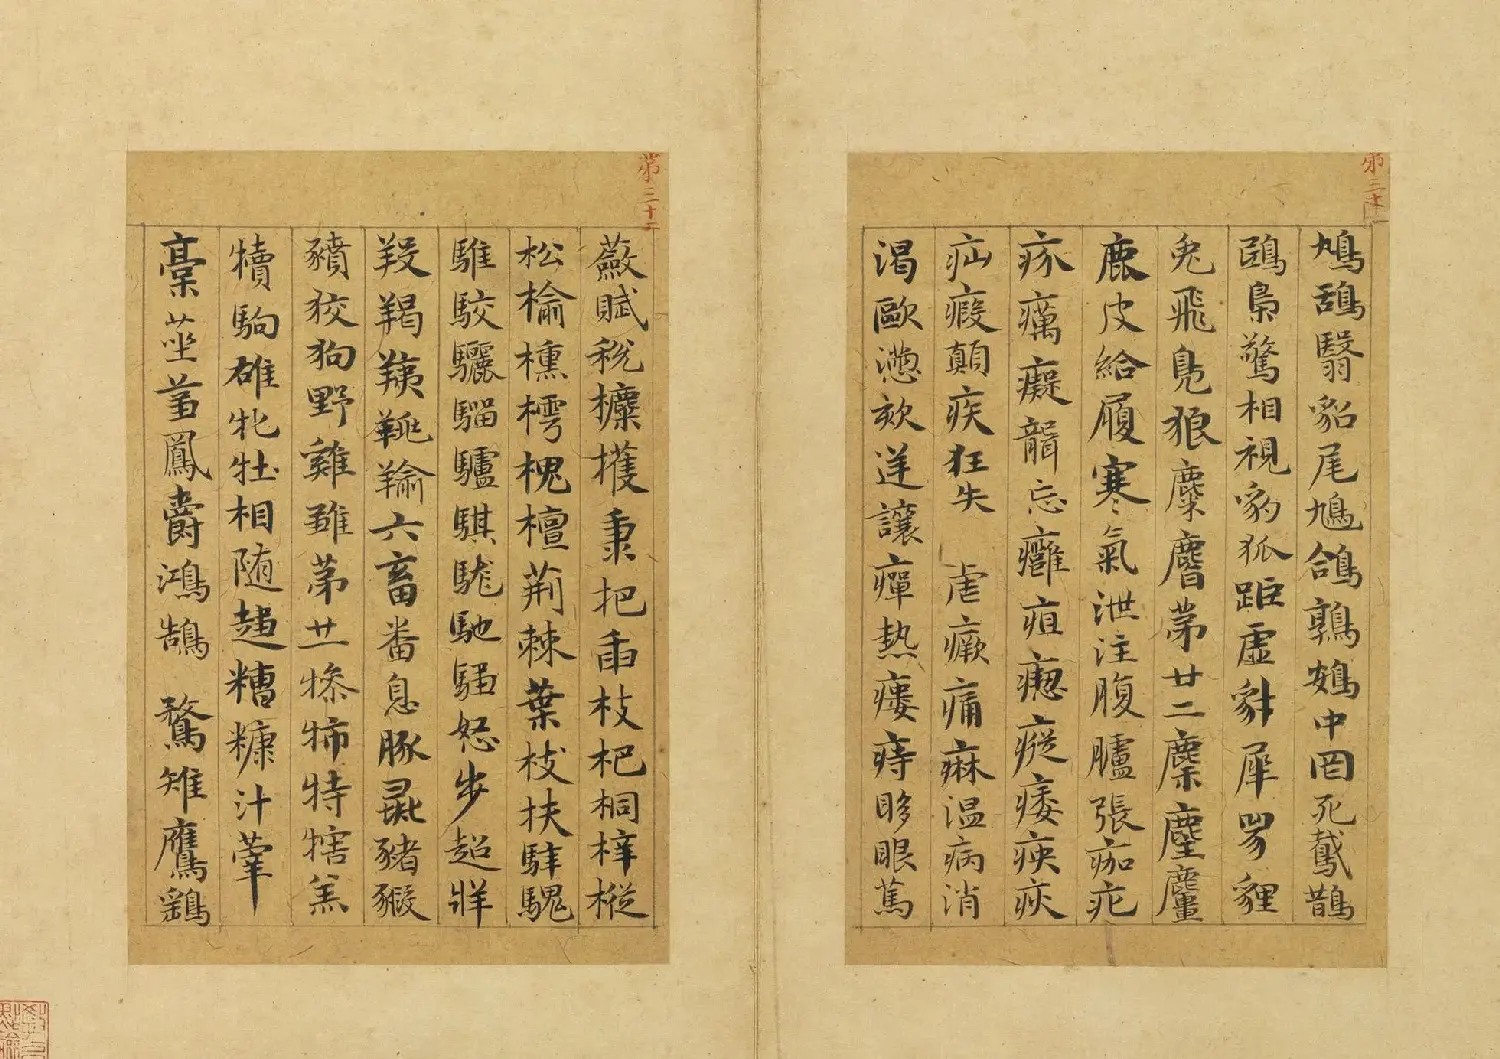 第三十一
鳩鴰翳貂尾鴆鴿鶉鴳中罔死鳶鵲
鴟梟驚相視豹狐距虛豺犀兕貍
兔飛鳧狼麋麔第廿二麇麈麠
鹿皮給履寒氣泄注腹臚張痂疕
疥癘癡聾忘癰疽瘛瘲痿痹疢
疝瘕顛疾狂失虐瘚痛痳溫病消
渴歐懣欬逆讓癉熱瘻痔眵眼篤
第三十二
蘞賦稅穈穫秉把臿枝杷桐梓樅
松榆櫄樗槐檀荊棘葉枝扶騂騩
騅駮驪騮驢騏駹馳驅怒步超牂
羖羯羠羭六畜番息豚彘豬豭
豶狡狗野雞雛第廿一㹊特犗羔
犢駒雄牝牡相随趨糟糠汁
藁莝芻鳳爵鴻鵠鶩雉鷹鷂